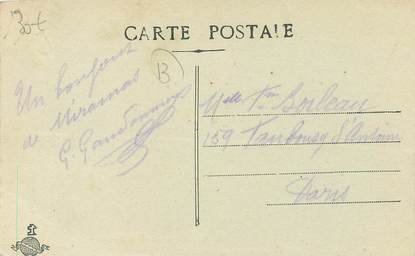 30€
CARTE POSTALE
B
Un bonjour
de Miramas
G.
Melle Boileau
159 Faubourg St Antoine
Paris